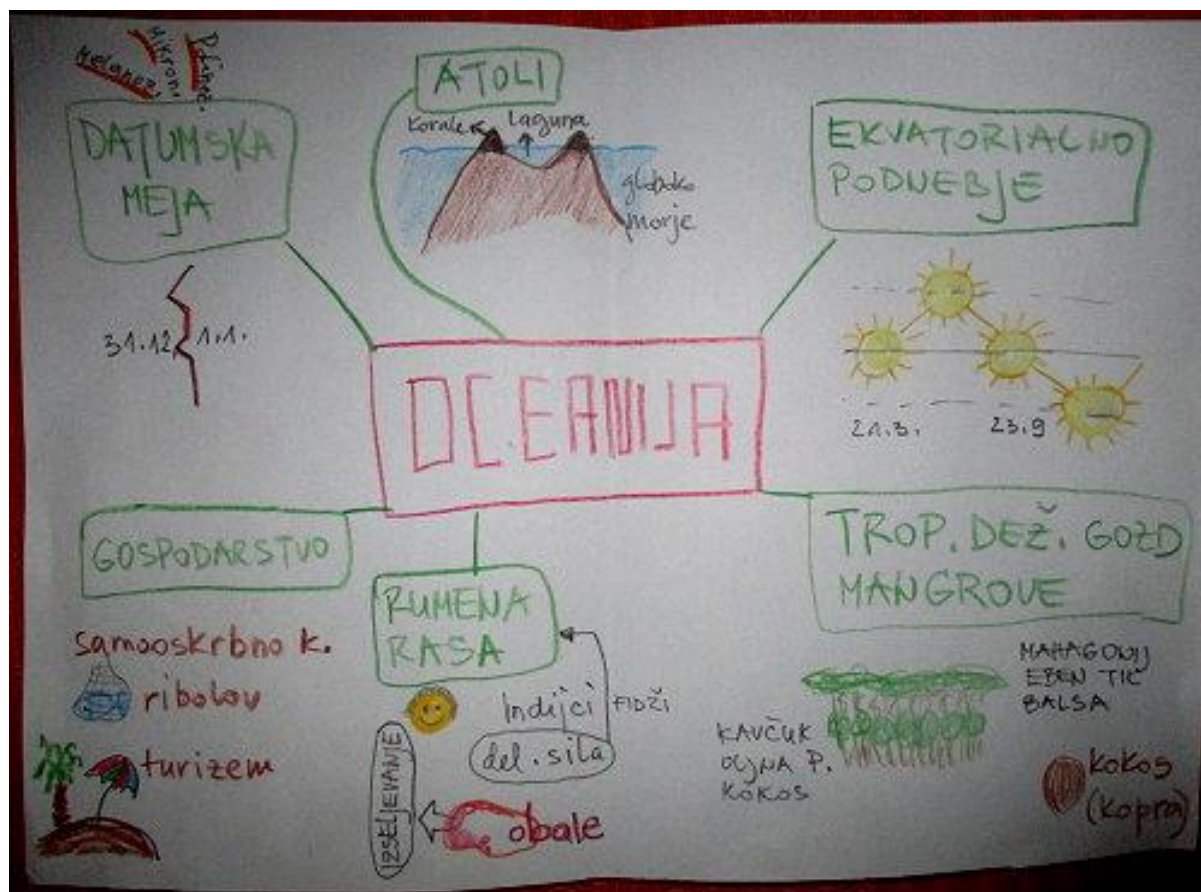 Melanez.
Mikron.
Polinez.
DATUMSKA
MEJA
31.12.
1.1.
ATOLI
Korale
Laguna
globoko
morje
EKVATORIALNO
PODNEBJE
21.3.
23.9
OCEANIJA
GOSPODARSTVO
samooskrbno k.
ribolov
turizem
RUMENA
RASA
Indijci
FIDŽI
del. sila
IZSELJEVANJE
obale
TROP. DEŽ. GOZD
MANGROVE
MAHAGONIJ
EBEN TIK
BALSA
KAVČUK
OLJNA P.
KOKOS
kokos
(kopra)